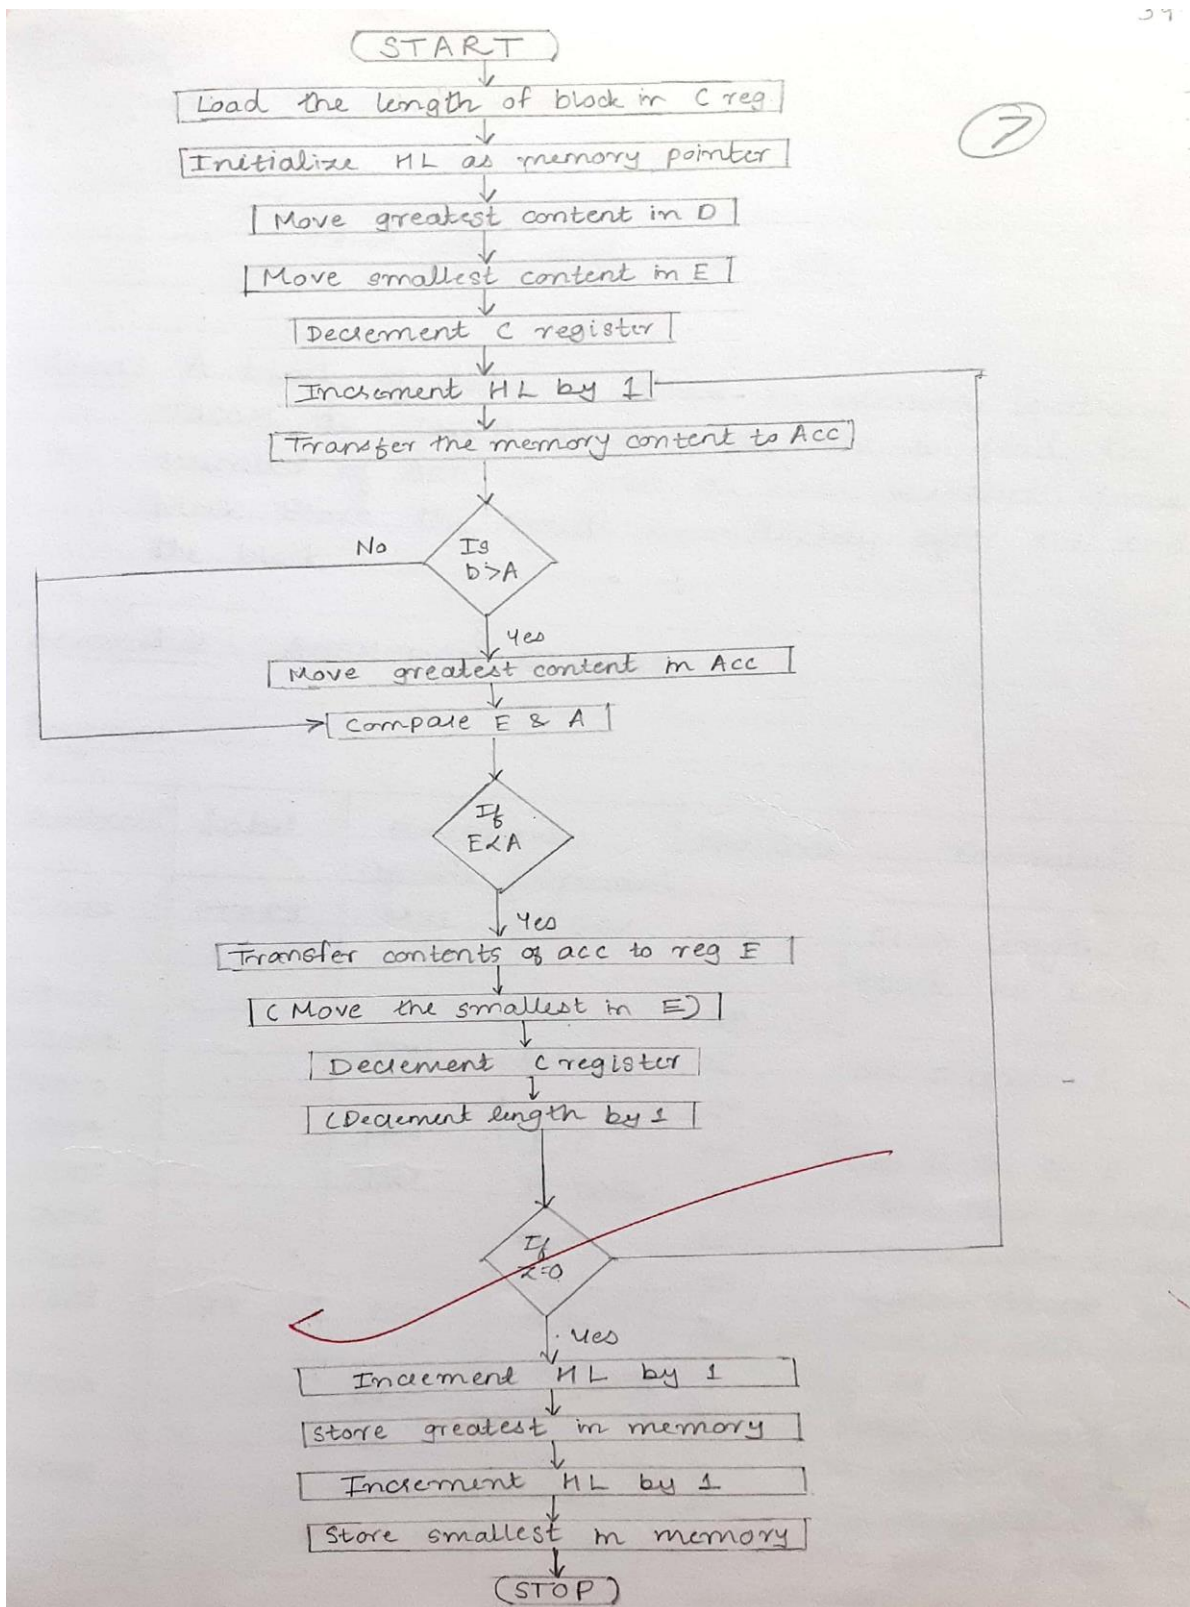 START
Load the length of block in C reg
7
Initialize HL as memory pointer
Move greatest content in D
Move smallest content in E
Decrement C register
Increment HL by 1
Transfer the memory content to Acc
No
Is
b>A
Yes
Move greatest content in Acc
Compare E & A
If
E<A
Yes
Transfer contents of acc to reg E
(Move the smallest in E)
Decrement C register
(Decrement length by 1
If
Z=0
Yes
Increment HL by 1
Store greatest in memory
Increment HL by 1
Store smallest in memory
STOP